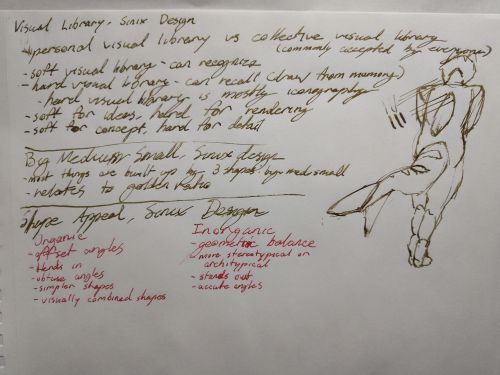 Visual Library, Sinix Design
personal visual library vs collective visual library
(commonly accepted by everyone)
- soft visual library - can recognize
- hard visual library - can recall (draw them memory)
- hard visual library is mostly iconography
- soft for ideas, hard for rendering
- soft for concept, hard for detail
Big Medium Small, Sinix design
- most things are built up by 3 shapes big med small
- relates to golden ratio
Shape Appeal, Sinix Design
Organic
- offset angles
- blends in
- obtuse angles
- simpler shapes
- visually combined shapes
Inorganic
- geometric balance
- more stereotypical or
architypical
- stands out
- accute angles